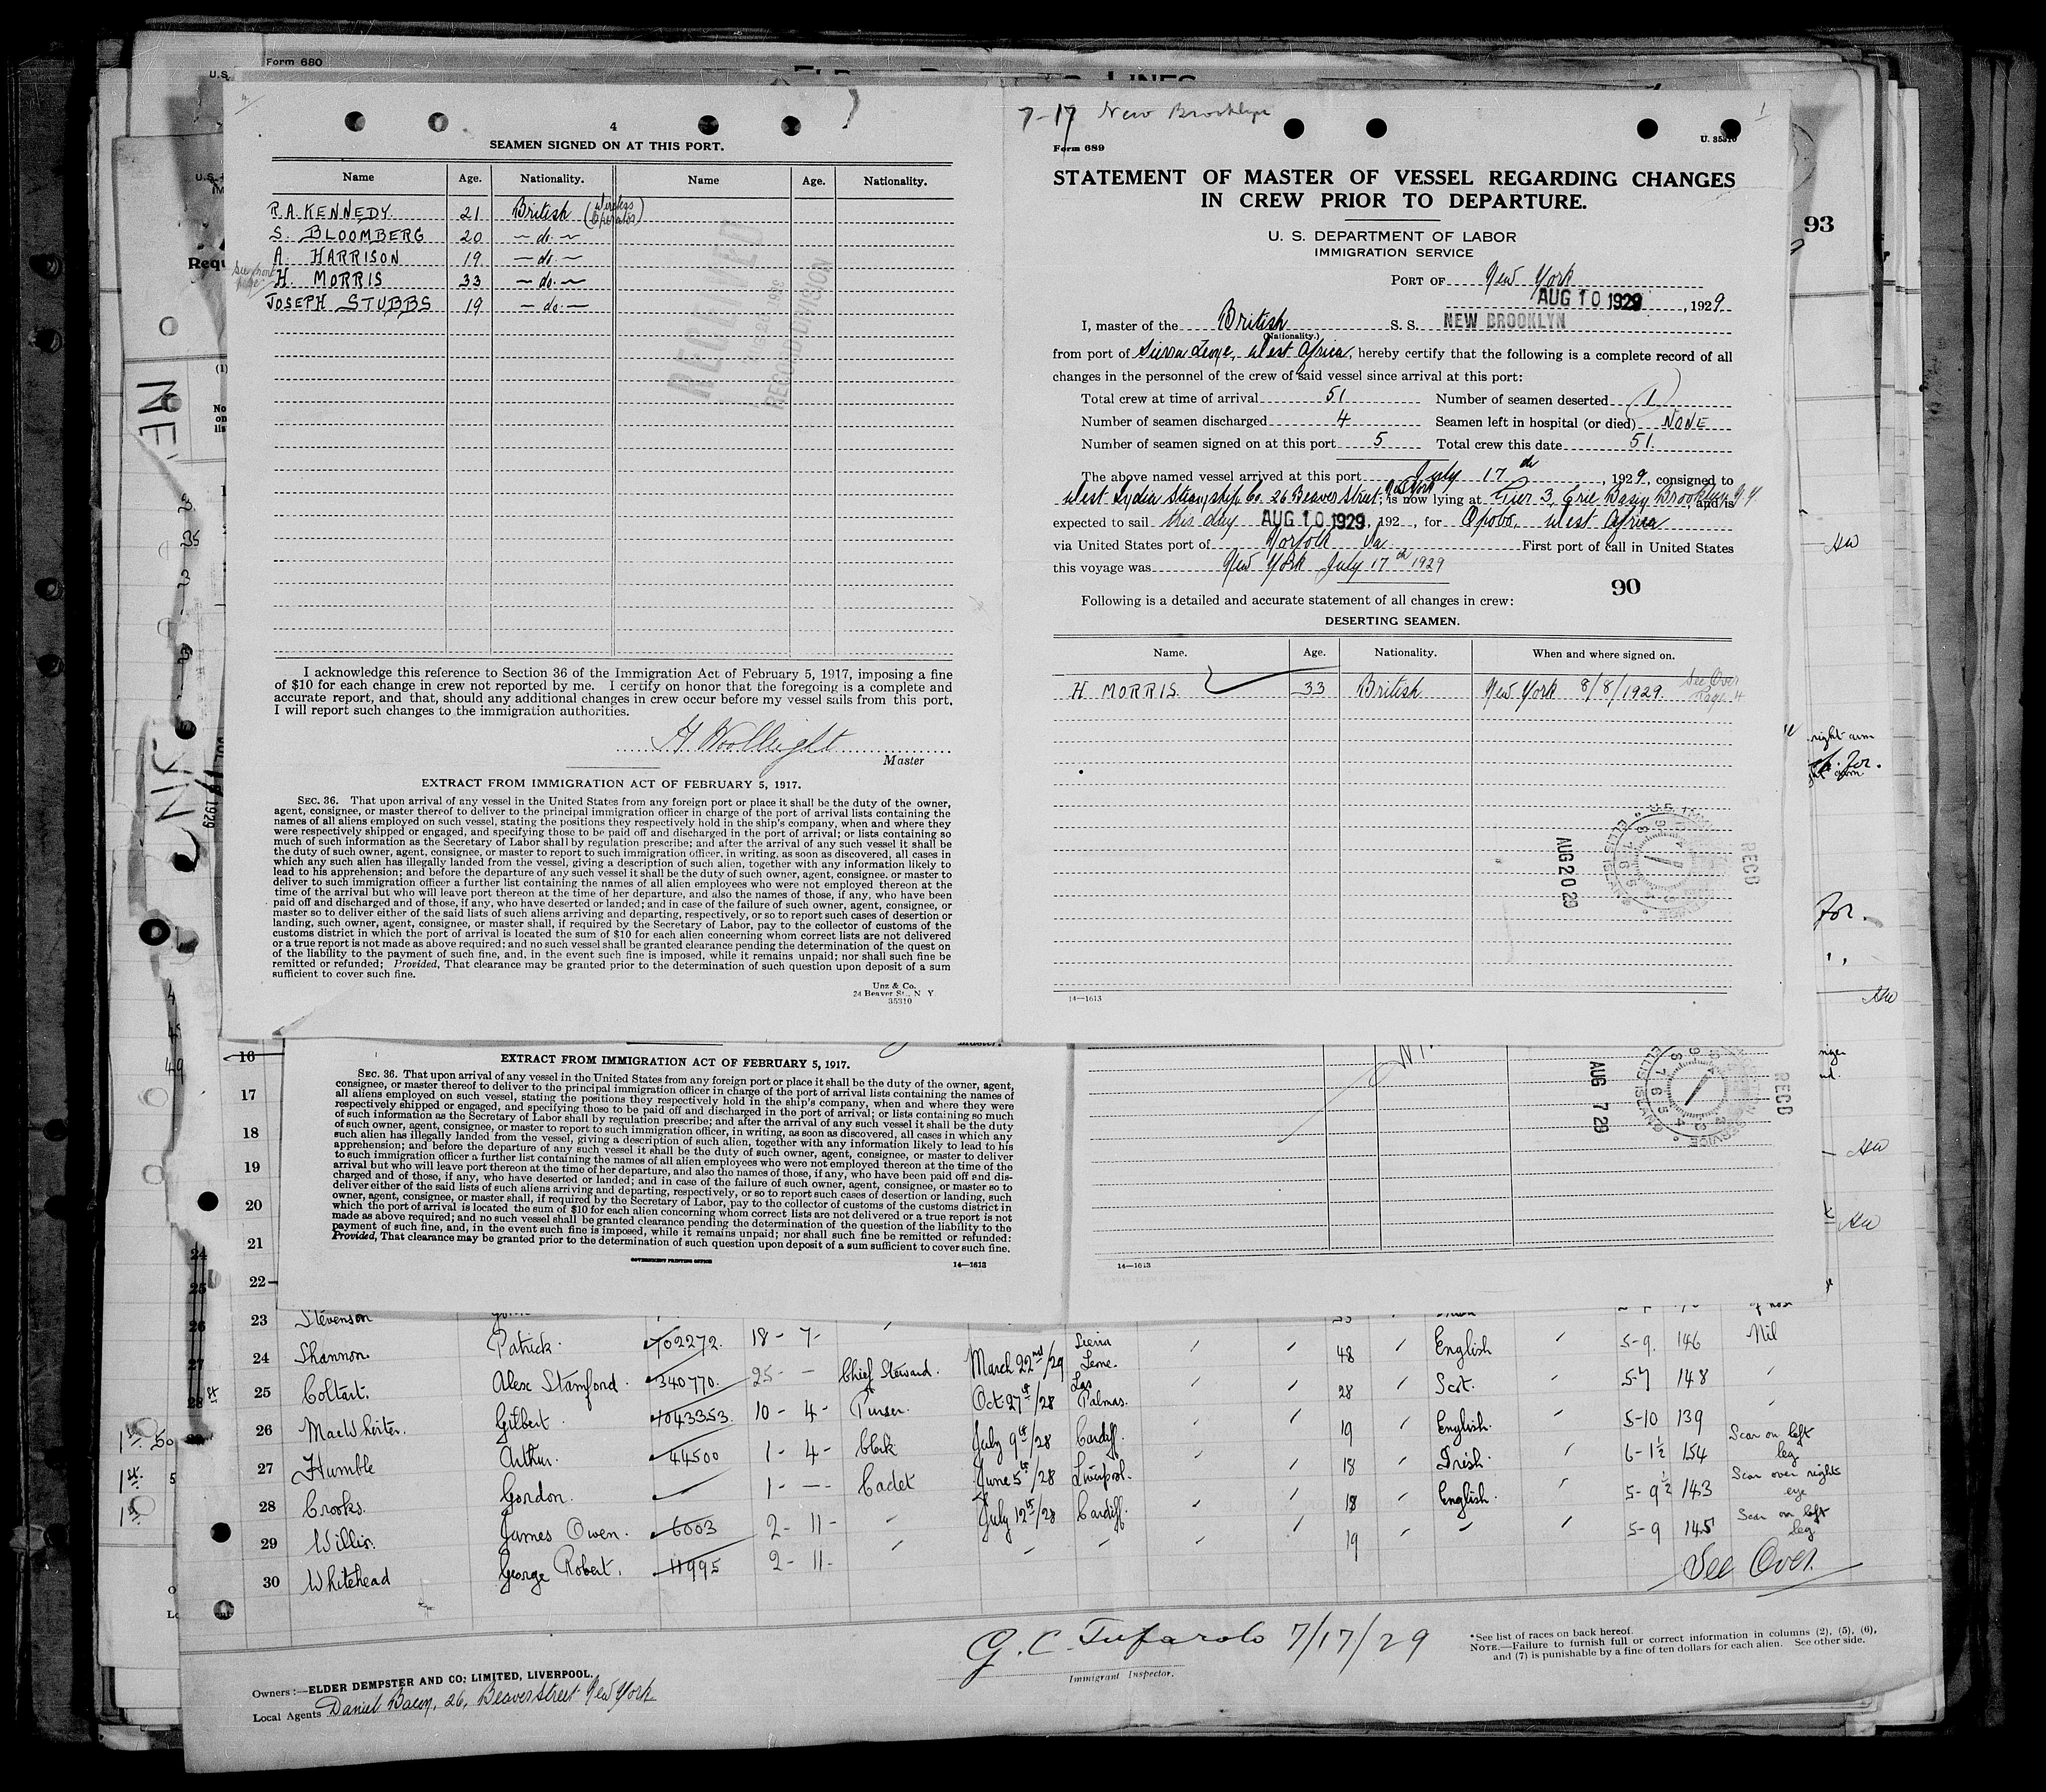 Form 680
4
SEAMEN SIGNED ON AT THIS PORT.
Name Age. Nationality. Name Age. Nationality.
R.A. KENNEDY. 21 British (Wireless Operator)
S. BLOOMBERG 20 — do. —
A HARRISON 19 — do. —
See front page H. MORRIS 33 — do. —
JOSEPH STUBBS 19 — do —
RECEIVED
RECORD DIVISION
I acknowledge this reference to Section 36 of the Immigration Act of February 5, 1917, imposing a fine
of $10 for each change in crew not reported by me. I certify on honor that the foregoing is a complete and
accurate report, and that, should any additional changes in crew occur before my vessel sails from this port,
I will report such changes to the immigration authorities.
Master
EXTRACT FROM IMMIGRATION ACT OF FEBRUARY 5, 1917.
SEC. 36. That upon arrival of any vessel in the United States from any foreign port or place it shall be the duty of the owner,
agent, consignee, or master thereof to deliver to the principal immigration officer in charge of the port of arrival lists containing the
names of all aliens employed on such vessel, stating the positions they respectively hold in the ship's company, when and where they
were respectively shipped or engaged, and specifying those to be paid off and discharged in the port of arrival; or lists containing so
much of such information as the Secretary of Labor shall by regulation prescribe; and after the arrival of any such vessel it shall be
the duty of such owner, agent, consignee, or master to report to such immigration officer, in writing, as soon as discovered, all cases in
which any such alien has illegally landed from the vessel, giving a description of such alien, together with any information likely to
lead to his apprehension; and before the departure of any such vessel it shall be the duty of such owner, agent, consignee, or master to
deliver to such immigration officer a further list containing the names of all alien employees who were not employed thereon at the
time of the arrival but who will leave port thereon at the time of her departure, and also the names of those, if any, who have been
paid off and discharged and of those, if any, who have deserted or landed; and in case of the failure of such owner, agent, consignee, or
master so to deliver either of the said lists of such aliens arriving and departing, respectively, or so to report such cases of desertion or
landing, such owner, agent, consignee, or master shall, if required by the Secretary of Labor, pay to the collector of customs of the
customs district in which the port of arrival is located the sum of $10 for each alien concerning whom correct lists are not delivered
or a true report is not made as above required; and no such vessel shall be granted clearance pending the determination of the quest on
of the liability to the payment of such fine, and, in the event such fine is imposed, while it remains unpaid; nor shall such fine be
remitted or refunded; Provided, That clearance may be granted prior to the determination of such question upon deposit of a sum
sufficient to cover such fine.
Unz & Co.
24 Beaver St., N. Y.
35310
7-17 New Brooklyn
Form 689
U. 35310
STATEMENT OF MASTER OF VESSEL REGARDING CHANGES
IN CREW PRIOR TO DEPARTURE.
U. S. DEPARTMENT OF LABOR
IMMIGRATION SERVICE
PORT OF New York
AUG 10 1929, 1929.
I, master of the British S. S. NEW BROOKLYN
(Nationality.)
from port of Sierra Leone, West Africa, hereby certify that the following is a complete record of all
changes in the personnel of the crew of said vessel since arrival at this port:
Total crew at time of arrival 51 Number of seamen deserted 1
Number of seamen discharged 4 Seamen left in hospital (or died) NONE
Number of seamen signed on at this port 5 Total crew this date 51.
The above named vessel arrived at this port July 17th, 1929, consigned to
West Lydia Steamship Co. 26 Beaver Street, New York is now lying at Pier 3, Erie Basin Brooklyn N.Y, and is
expected to sail this day AUG 10 1929, 192 , for Opobo, West Africa
via United States port of Norfolk Va. First port of call in United States
this voyage was New York July 17th 1929
90
Following is a detailed and accurate statement of all changes in crew:
DESERTING SEAMEN.
Name. Age. Nationality. When and where signed on.
H MORRIS. 33 British New York 8/8/1929. See Over Page 4
AUG 20 29
RECD
14—1613
93
EXTRACT FROM IMMIGRATION ACT OF FEBRUARY 5, 1917.
SEC. 36. That upon arrival of any vessel in the United States from any foreign port or place it shall be the duty of the owner, agent,
consignee, or master thereof to deliver to the principal immigration officer in charge of the port of arrival lists containing the names of
all aliens employed on such vessel, stating the positions they respectively hold in the ship's company, when and where they were
respectively shipped or engaged, and specifying those to be paid off and discharged in the port of arrival; or lists containing so much
of such information as the Secretary of Labor shall by regulation prescribe; and after the arrival of any such vessel it shall be the duty
of such owner, agent, consignee, or master to report to such immigration officer, in writing, as soon as discovered, all cases in which any
such alien has illegally landed from the vessel, giving a description of such alien, together with any information likely to lead to his
apprehension; and before the departure of any such vessel it shall be the duty of such owner, agent, consignee, or master to deliver
to such immigration officer a further list containing the names of all alien employees who were not employed thereon at the time of the
arrival but who will leave port thereon at the time of her departure, and also the names of those, if any, who have been paid off and dis-
charged and of those, if any, who have deserted or landed; and in case of the failure of such owner, agent, consignee, or master so to
deliver either of the said lists of such aliens arriving and departing, respectively, or so to report such cases of desertion or landing, such
owner, agent, consignee, or master shall, if required by the Secretary of Labor, pay to the collector of customs of the customs district in
which the port of arrival is located the sum of $10 for each alien concerning whom correct lists are not delivered or a true report is not
made as above required; and no such vessel shall be granted clearance pending the determination of the question of the liability to the
payment of such fine, and, in the event such fine is imposed, while it remains unpaid; nor shall such fine be remitted or refunded:
Provided, That clearance may be granted prior to the determination of such question upon deposit of a sum sufficient to cover such fine.
GOVERNMENT PRINTING OFFICE
14—1613
14—1613
AUG 7 29
RECD
16
17
18
19
20
21
22
23 Stevenson
24 Shannon. Patrick. 702272. 18 - 7 -
25 Coltart. Alex Stamford. 340770. 25 - — Chief Steward. March 22nd/29 Sierra Leone. 48 English 5-9. 146 Nil
26 MacWhirter. Gilbert. 1043353. 10 - 4 - Purser. Oct 27th/28 Las Palmas. 28 Scot. 5-7 148
27 Humble Arthur. 44500 1 - 4 - Clerk July 9th/28 Cardiff. 19 English. 5-10 139
28 Crooks. Gordon. 1 - — Cadet June 5th/28 Liverpool. 18 Irish. 6-1½ 154 Scar on left leg
29 Willis. James Owen. 6003 2 - 11 - July 12th/28 Cardiff. 18 English. 5-9½ 143 Scar over right eye
30 Whitehead George Robert. 11995 2 - 11 - 19 5-9 145 Scar on left leg
See Over.
G. C. Tufarolo 7/17/29
Immigrant Inspector.
*See list of races on back hereof.
NOTE.—Failure to furnish full or correct information in columns (2), (5), (6),
and (7) is punishable by a fine of ten dollars for each alien. See other side.
Owners :—ELDER DEMPSTER AND CO; LIMITED, LIVERPOOL.
Local Agents Daniel Bacon, 26, Beaver Street New York